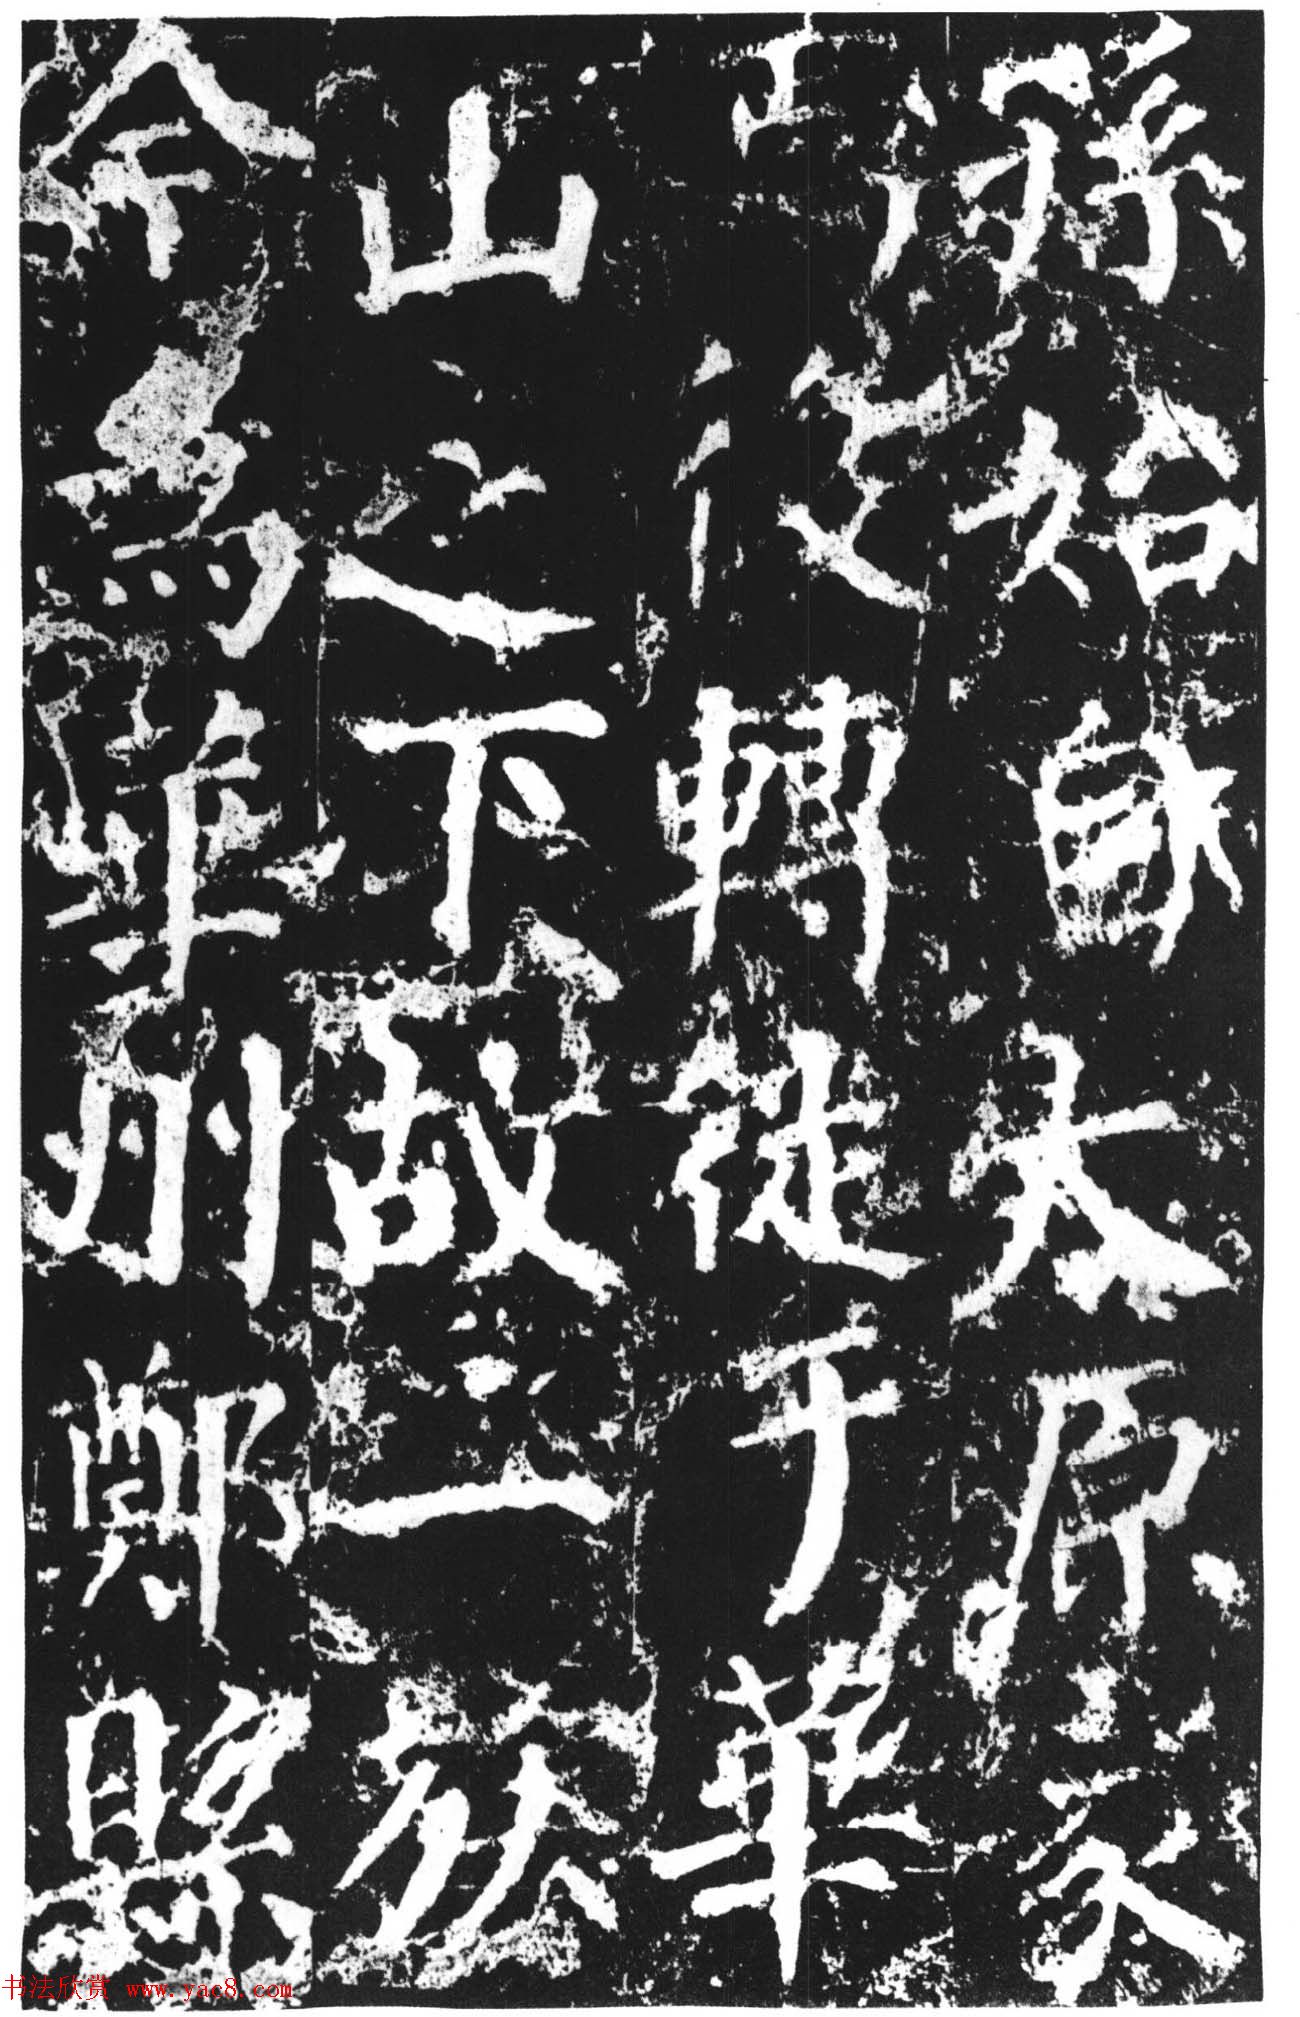 孫始自太原家
于後轉徙于華
山之下故一然
今為華州鄭縣
书法欣赏 www.yac8.com